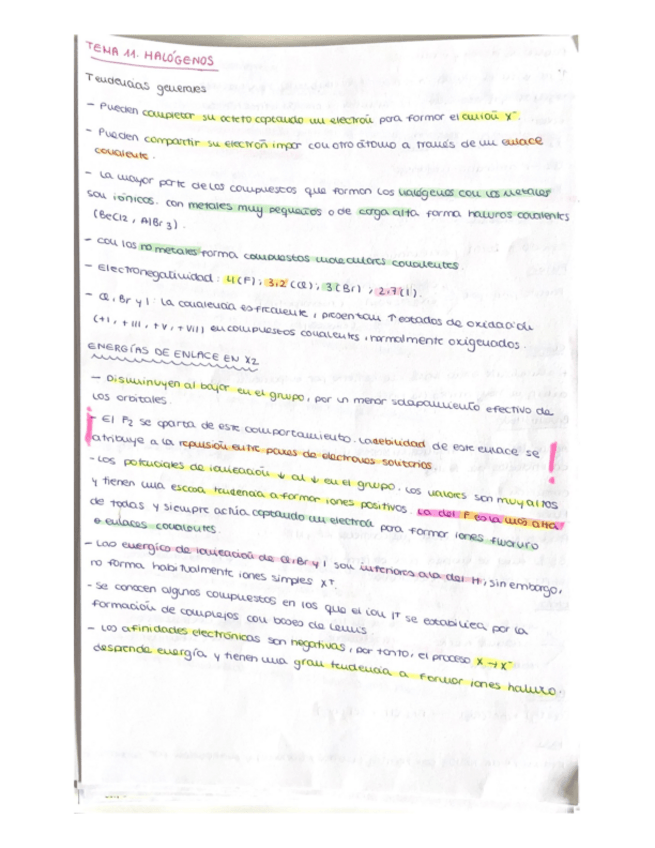 TEMA 11. HALÓGENOS
Tendencias generales
- Pueden completar su octeto captando un electrón para formar el anión X⁻.
- Pueden compartir su electrón impar con otro átomo a través de un enlace
covalente.
- La mayor parte de los compuestos que forman los halógenos con los metales
son iónicos. Con metales muy pequeños o de carga alta forma haluros covalentes
(BeCl2, AlBr3).
- Con los no metales forma compuestos moleculares covalentes.
- Electronegatividad: 4(F); 3,2(Cl); 3(Br); 2,7(I).
- Cl, Br y I: La covalencia es frecuente, presentan ↑ estados de oxidación
(+I, +III, +V, +VII) en compuestos covalentes, normalmente oxigenados.
ENERGÍAS DE ENLACE EN X2
- Disminuyen al bajar en el grupo, por un menor solapamiento efectivo de
los orbitales.
- El F2 se aparta de este comportamiento. La debilidad de este enlace se
atribuye a la repulsión entre pares de electrones solitarios !
- Los potenciales de ionización ↓ al ↓ en el grupo. Los valores son muy altos
y tienen una escasa tendencia a formar iones positivos. La del F es la más alta
de todas y siempre actúa captando un electrón para formar iones fluoruro
o enlaces covalentes.
- Las energías de ionización de Cl, Br y I son inferiores a la del H, sin embargo,
no forma habitualmente iones simples X⁺.
- Se conocen algunos compuestos en los que el ion I⁺ se estabiliza por la
formación de complejos con bases de Lewis.
- Las afinidades electrónicas son negativas, por tanto, el proceso X → X⁻
desprende energía y tienen una gran tendencia a formar iones haluro.